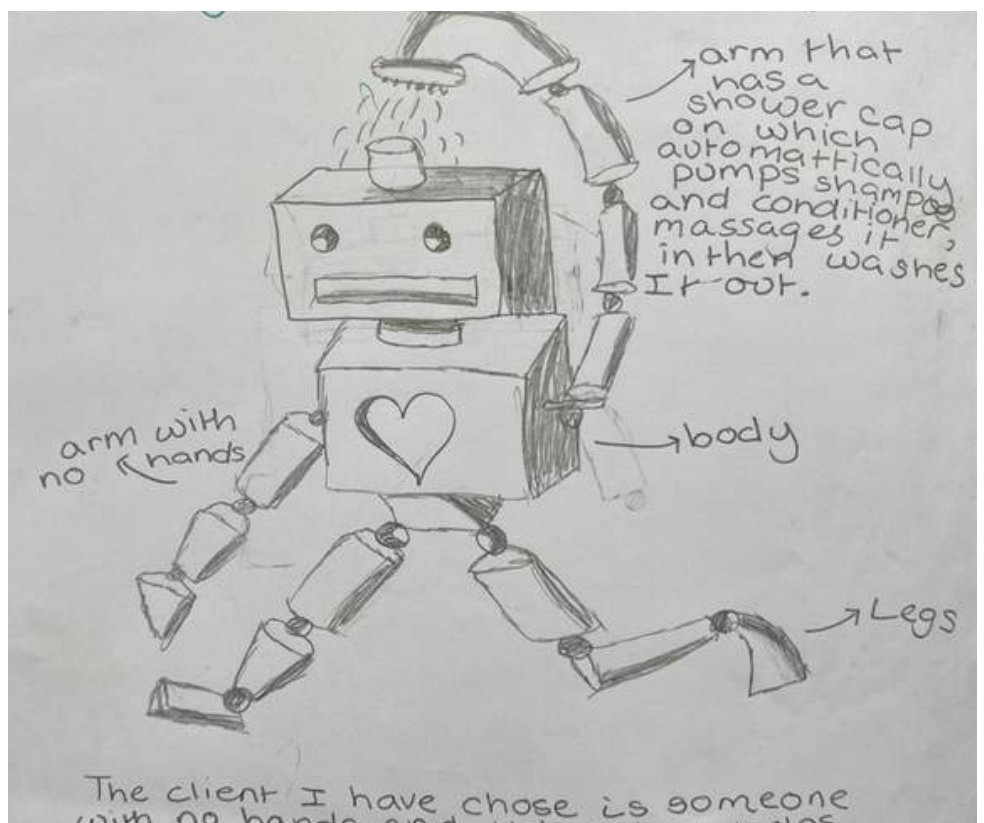 arm that
has a
shower cap
on which
automattically
pumps shampoo
and conditioner,
massages it
in then washes
It out.
arm with
no hands
body
Legs
The client I have chose is someone
with no hands and